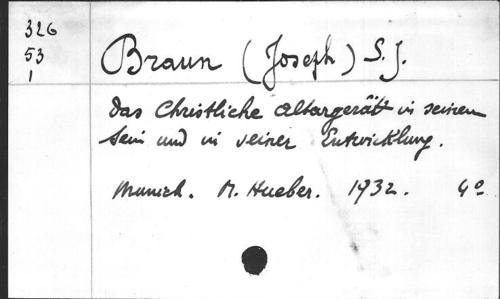 326
53
1
Braun (Joseph) S.J.
Das Christliche Altargerät in seinem
Sein und in seiner Entwicklung.
Munich. M. Hueber. 1932. 4º